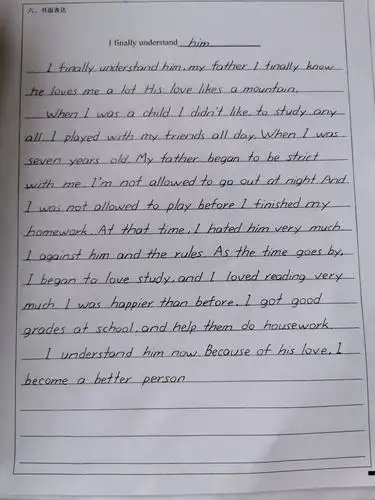 六、书面表达
I finally understand him
I finally understand him, my father I finally know
he loves me a lot His love likes a mountain.
When I was a child I didn't like to study any
all. I played with my friends all day. When I was
seven years old. My father began to be strict
with me. I'm not allowed to go out at night. And
I was not allowed to play before I finished my
homework. At that time, I hated him very much.
I against him and the rules. As the time goes by,
I began to love study, and I loved reading very
much I was happier than before. I got good
grades at school, and help them do housework.
I understand him now. Because of his love, I
become a better person